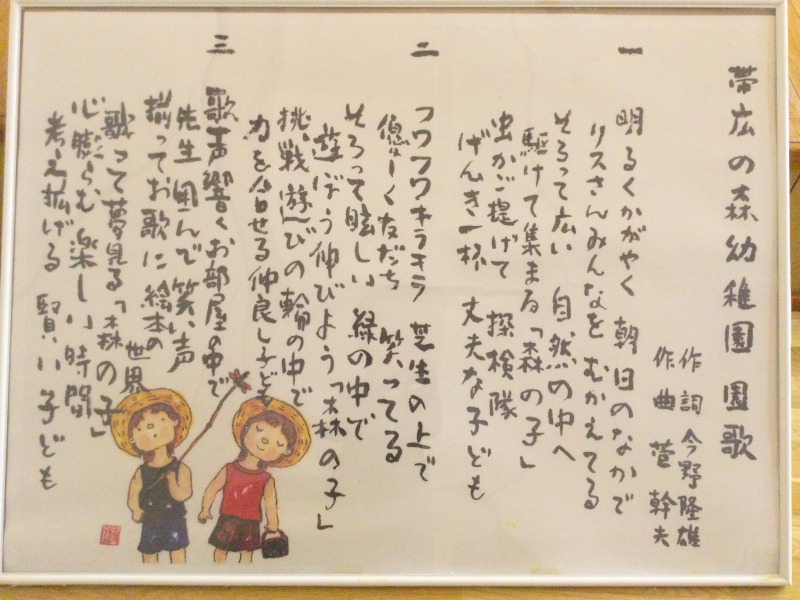 帯広の森幼稚園 園歌
作詞 今野隆雄
作曲 菅 幹夫
一
明るくかがやく 朝日のなかで
リスさんみんなを むかえてる
そろって広い 自然の中へ
駆けて集まる「森の子」
虫かご提げて 探検隊
げんき一杯 丈夫な子ども
二
フワフワキラキラ 芝生の上で
優しく友だち 笑ってる
そろって眩しい 緑の中で
遊ぼう伸びよう「森の子」
挑戦遊びの輪の中で
力を合せる仲良し子ども
三
歌声響くお部屋の中で
先生囲んで笑い声
揃ってお歌に絵本の世界
歌って夢見る「森の子」
心膨らむ楽しい時間
考え拡げる 賢い子ども